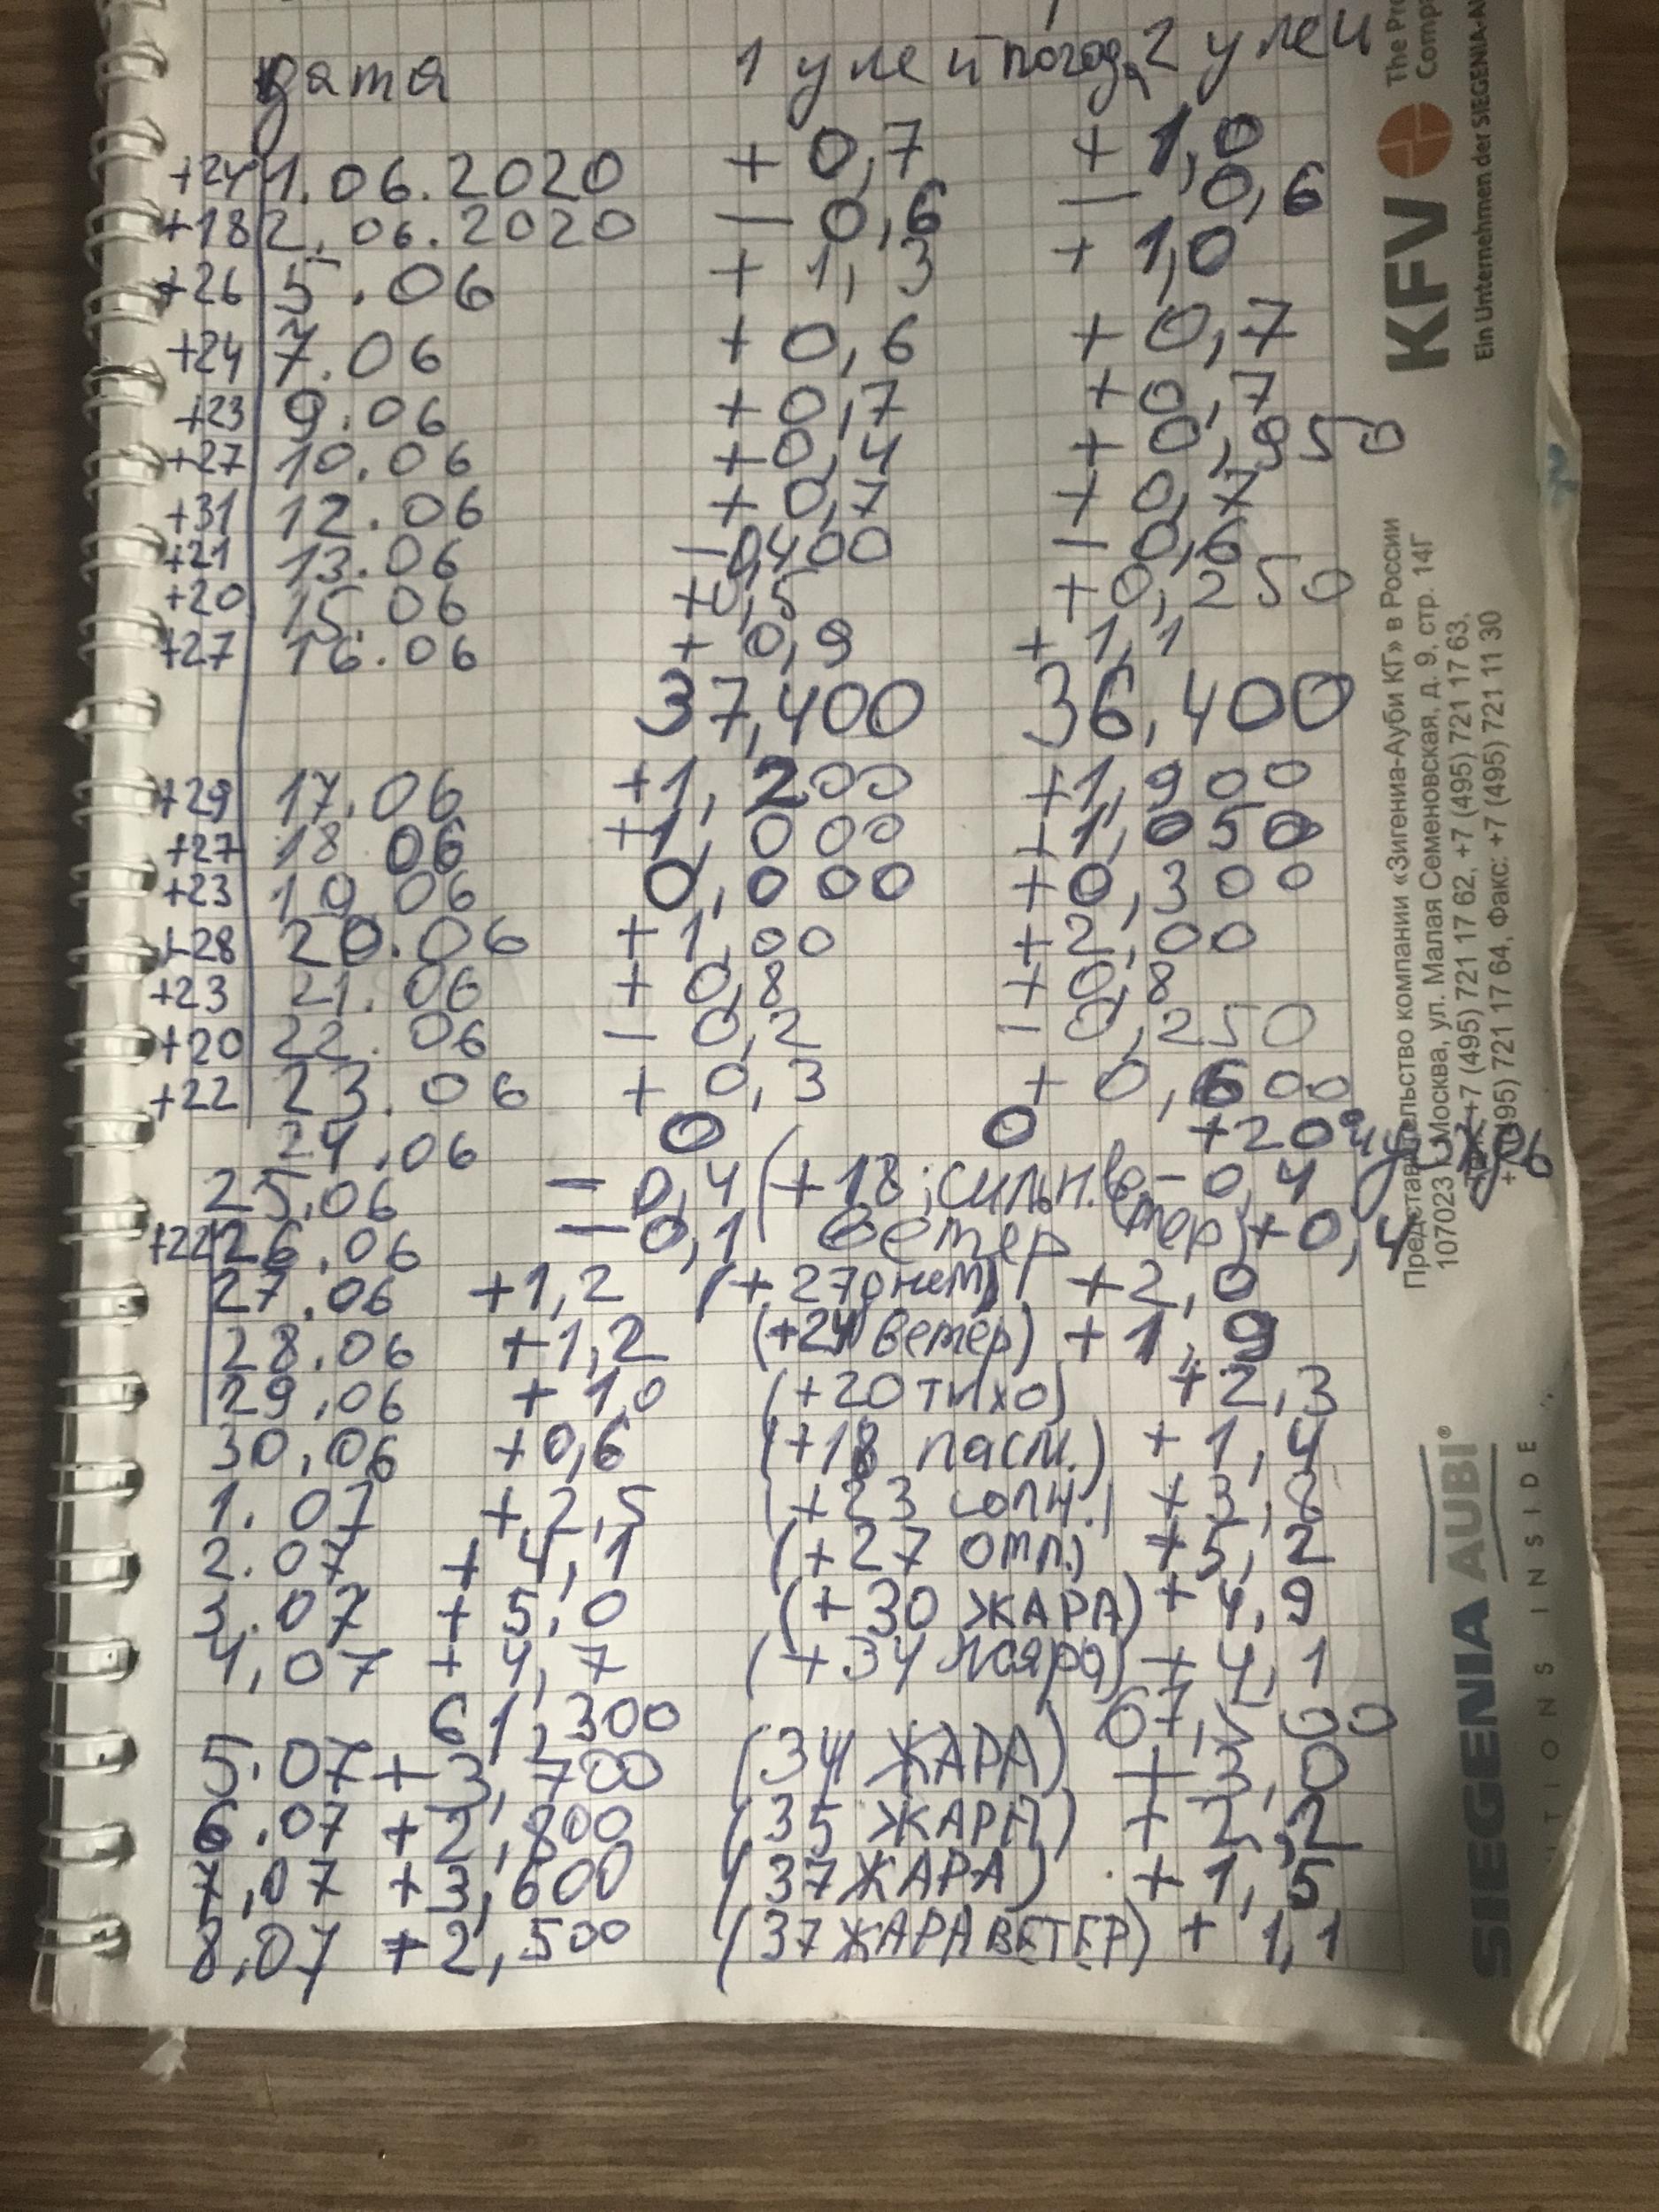 дата 1 улей погода 2 улей
+24 1.06.2020 +0,7 +1,0
+18 2.06.2020 —0,6 —0,6
+26 5.06 +1,3 +1,0
+24 7.06 +0,6 +0,7
+23 9.06 +0,7 +0,7
+27 10.06 +0,4 +0,950
+31 12.06 +0,7 +0,7
+21 13.06 —0,400 —0,6
+20 15.06 +0,5 +0,250
+27 16.06 +0,9 +1,1
37,400 36,400
+29 17.06 +1,200 +1,900
+27 18 06 +1,000 +1,050
+23 19 06 0,000 +0,300
+28 20.06 +1,00 +2,00
+23 21.06 +0,8 +0,8
+20 22.06 —0,2 —0,250
+22 23.06 +0,3 +0,600
24.06 0 0 +20
25.06 —0,4 (+18; сильн.ветер) —0,4
+22 26.06 —0,1 ветер +0,4
27.06 +1,2 (+27 ) +2,0
28.06 +1,2 (+24 ветер) +1,9
29.06 +1,0 (+20 тихо) +2,3
30.06 +0,6 (+18 пасм.) +1,4
1.07 +2,5 (+23 солн.) +3,8
2.07 +4,1 (+27 отл.) +5,2
3.07 +5,0 (+30 ЖАРА) +4,9
4,07 +4,7 (+34 жара) +4,1
61,300 67,500
5.07 +3,700 (34 ЖАРА) +3,0
6.07 +2,800 (35 ЖАРА) +2,2
7,07 +3,600 (37 ЖАРА) +1,5
8,07 +2,500 (37 ЖАРА ВЕТЕР) + 1,1
The Pro
Compa
KFV
Ein Unternehmen der SIEGENIA-AU
Представительство компании «Зигениа-Ауби КГ» в России
107023 Москва, ул. Малая Семеновская, д. 9, стр. 14Г
+7 (495) 721 17 62, +7 (495) 721 17 63,
+7 (495) 721 17 64, Факс: +7 (495) 721 11 30
SIEGENIA AUBI®
TIONS INSIDE